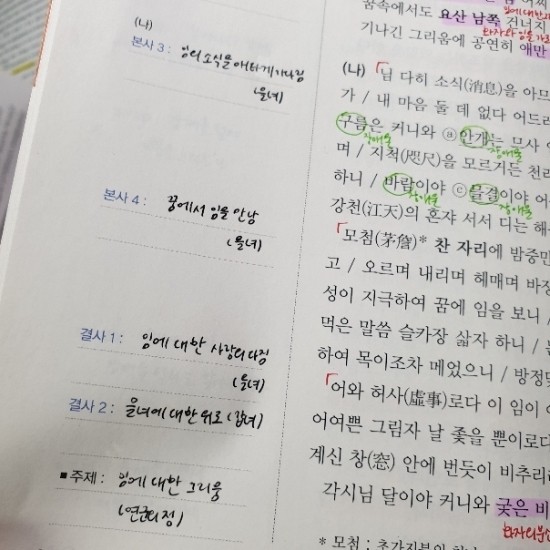 (나)
본사 3 : 임의 소식을 애타게 기다림
(을녀)
본사 4 : 꿈에서 임을 만남
(을녀)
결사 1 : 임에 대한 사랑의 다짐
(을녀)
결사 2 : 을녀에 대한 위로 (갑녀)
■ 주제 : 임에 대한 그리움
(연군의 정)
꿈속에서도 요산 남쪽 건너지
기나긴 그리움에 공연히 애만
(나) 「님 다히 소식(消息)을 아므
가 / 내 마음 둘 데 없다 어드러
구름은 커니와 ⓐ안개는 므사
장애물 장애물
며 / 지척(咫尺)을 모르거든 천리
하니 / 바람이야 ⓒ물결이야 어
장애물 장애물
강천(江天)의 혼쟈 서서 디는 해
「모첨(茅簷)* 찬 자리에 밤중만
고 / 오르며 내리며 헤매며 바장
성이 지극하여 꿈에 임을 보니 /
먹은 말씀 슬카장 삷자 하니 /
하여 목이조차 메었으니 / 방정
「어와 허사(虛事)로다 이 임이 어
어여쁜 그림자 날 좇을 뿐이로다
계신 창(窓) 안에 번듯이 비추리
각시님 달이야 커니와 궂은 비
* 모첨 : 초가지붕의